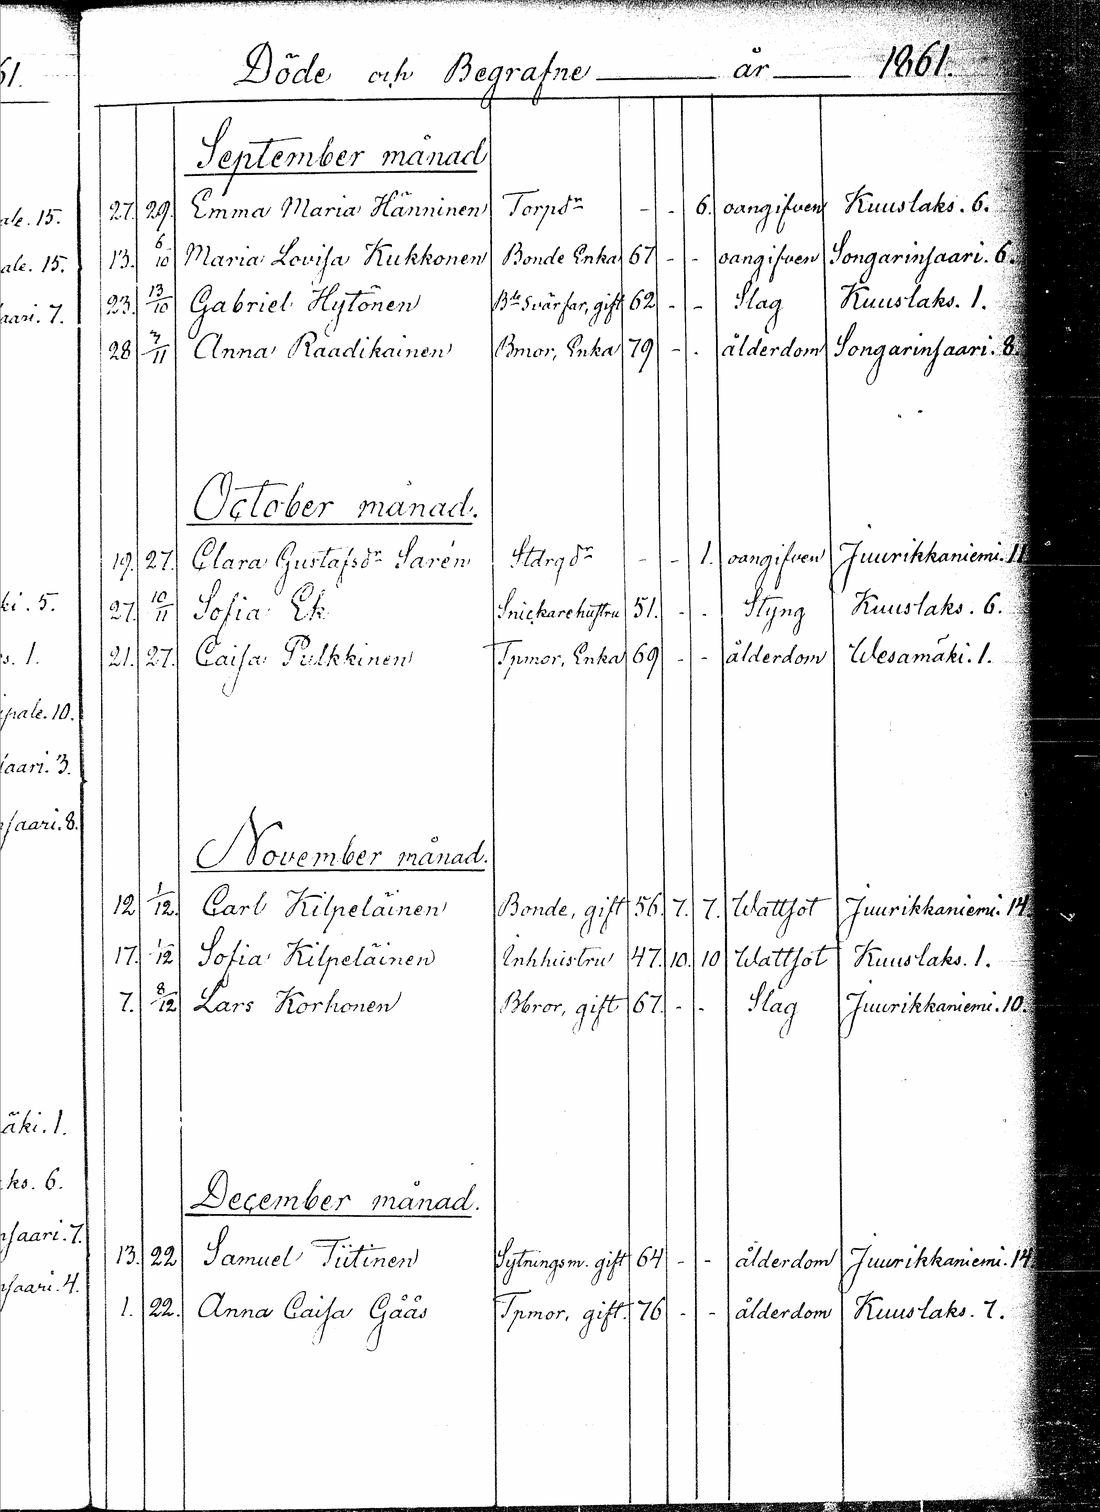 61.
ale. 15.
ale. 15.
aari. 7.
ki. 5.
s. 1.
pale. 10.
saari. 3.
nsaari. 8.
äki. 1.
ks. 6.
nsaari. 7.
nsaari. 4.
Döde och Begrafne år 1861.
September månad
27. 29. Emma Maria Hänninen Torpdr - - 6. oangifven Kuuslaks. 6.
13. 6/10 Maria Lovisa Kukkonen Bonde Enka 67 - - oangifven Songarinsaari. 6.
23. 13/10 Gabriel Hytönen Bde Svärfar, gift 62 - - Slag Kuuslaks. 1.
28 3/11 Anna Raadikainen Bmor, Enka 79 - . ålderdom Songarinsaari. 8.
October månad.
19. 27. Clara Gustafsdr Sarén Stdrgdr - - 1. oangifven Juurikkaniemi. 11
27. 10/11 Sofia Ek Snickarehustru 51. - - Styng Kuuslaks. 6.
21. 27. Caisa Pulkkinen Tpmor, Enka 69 - - ålderdom Wesamäki. 1.
November månad.
12 1/12. Carl Kilpeläinen Bonde, gift 56. 7. 7. Wattsot Juurikkaniemi. 14.
17. 1/12 Sofia Kilpeläinen Inhhustru 47. 10. 10 Wattsot Kuuslaks. 1.
7. 8/12 Lars Korhonen Bbror, gift 67. - - Slag Juurikkaniemi. 10.
December månad.
13. 22 Samuel Tiitinen Sytningsm. gift 64 - - ålderdom Juurikkaniemi. 14
1. 22. Anna Caisa Gåås Tpmor, gift. 76 - - ålderdom Kuuslaks. 7.